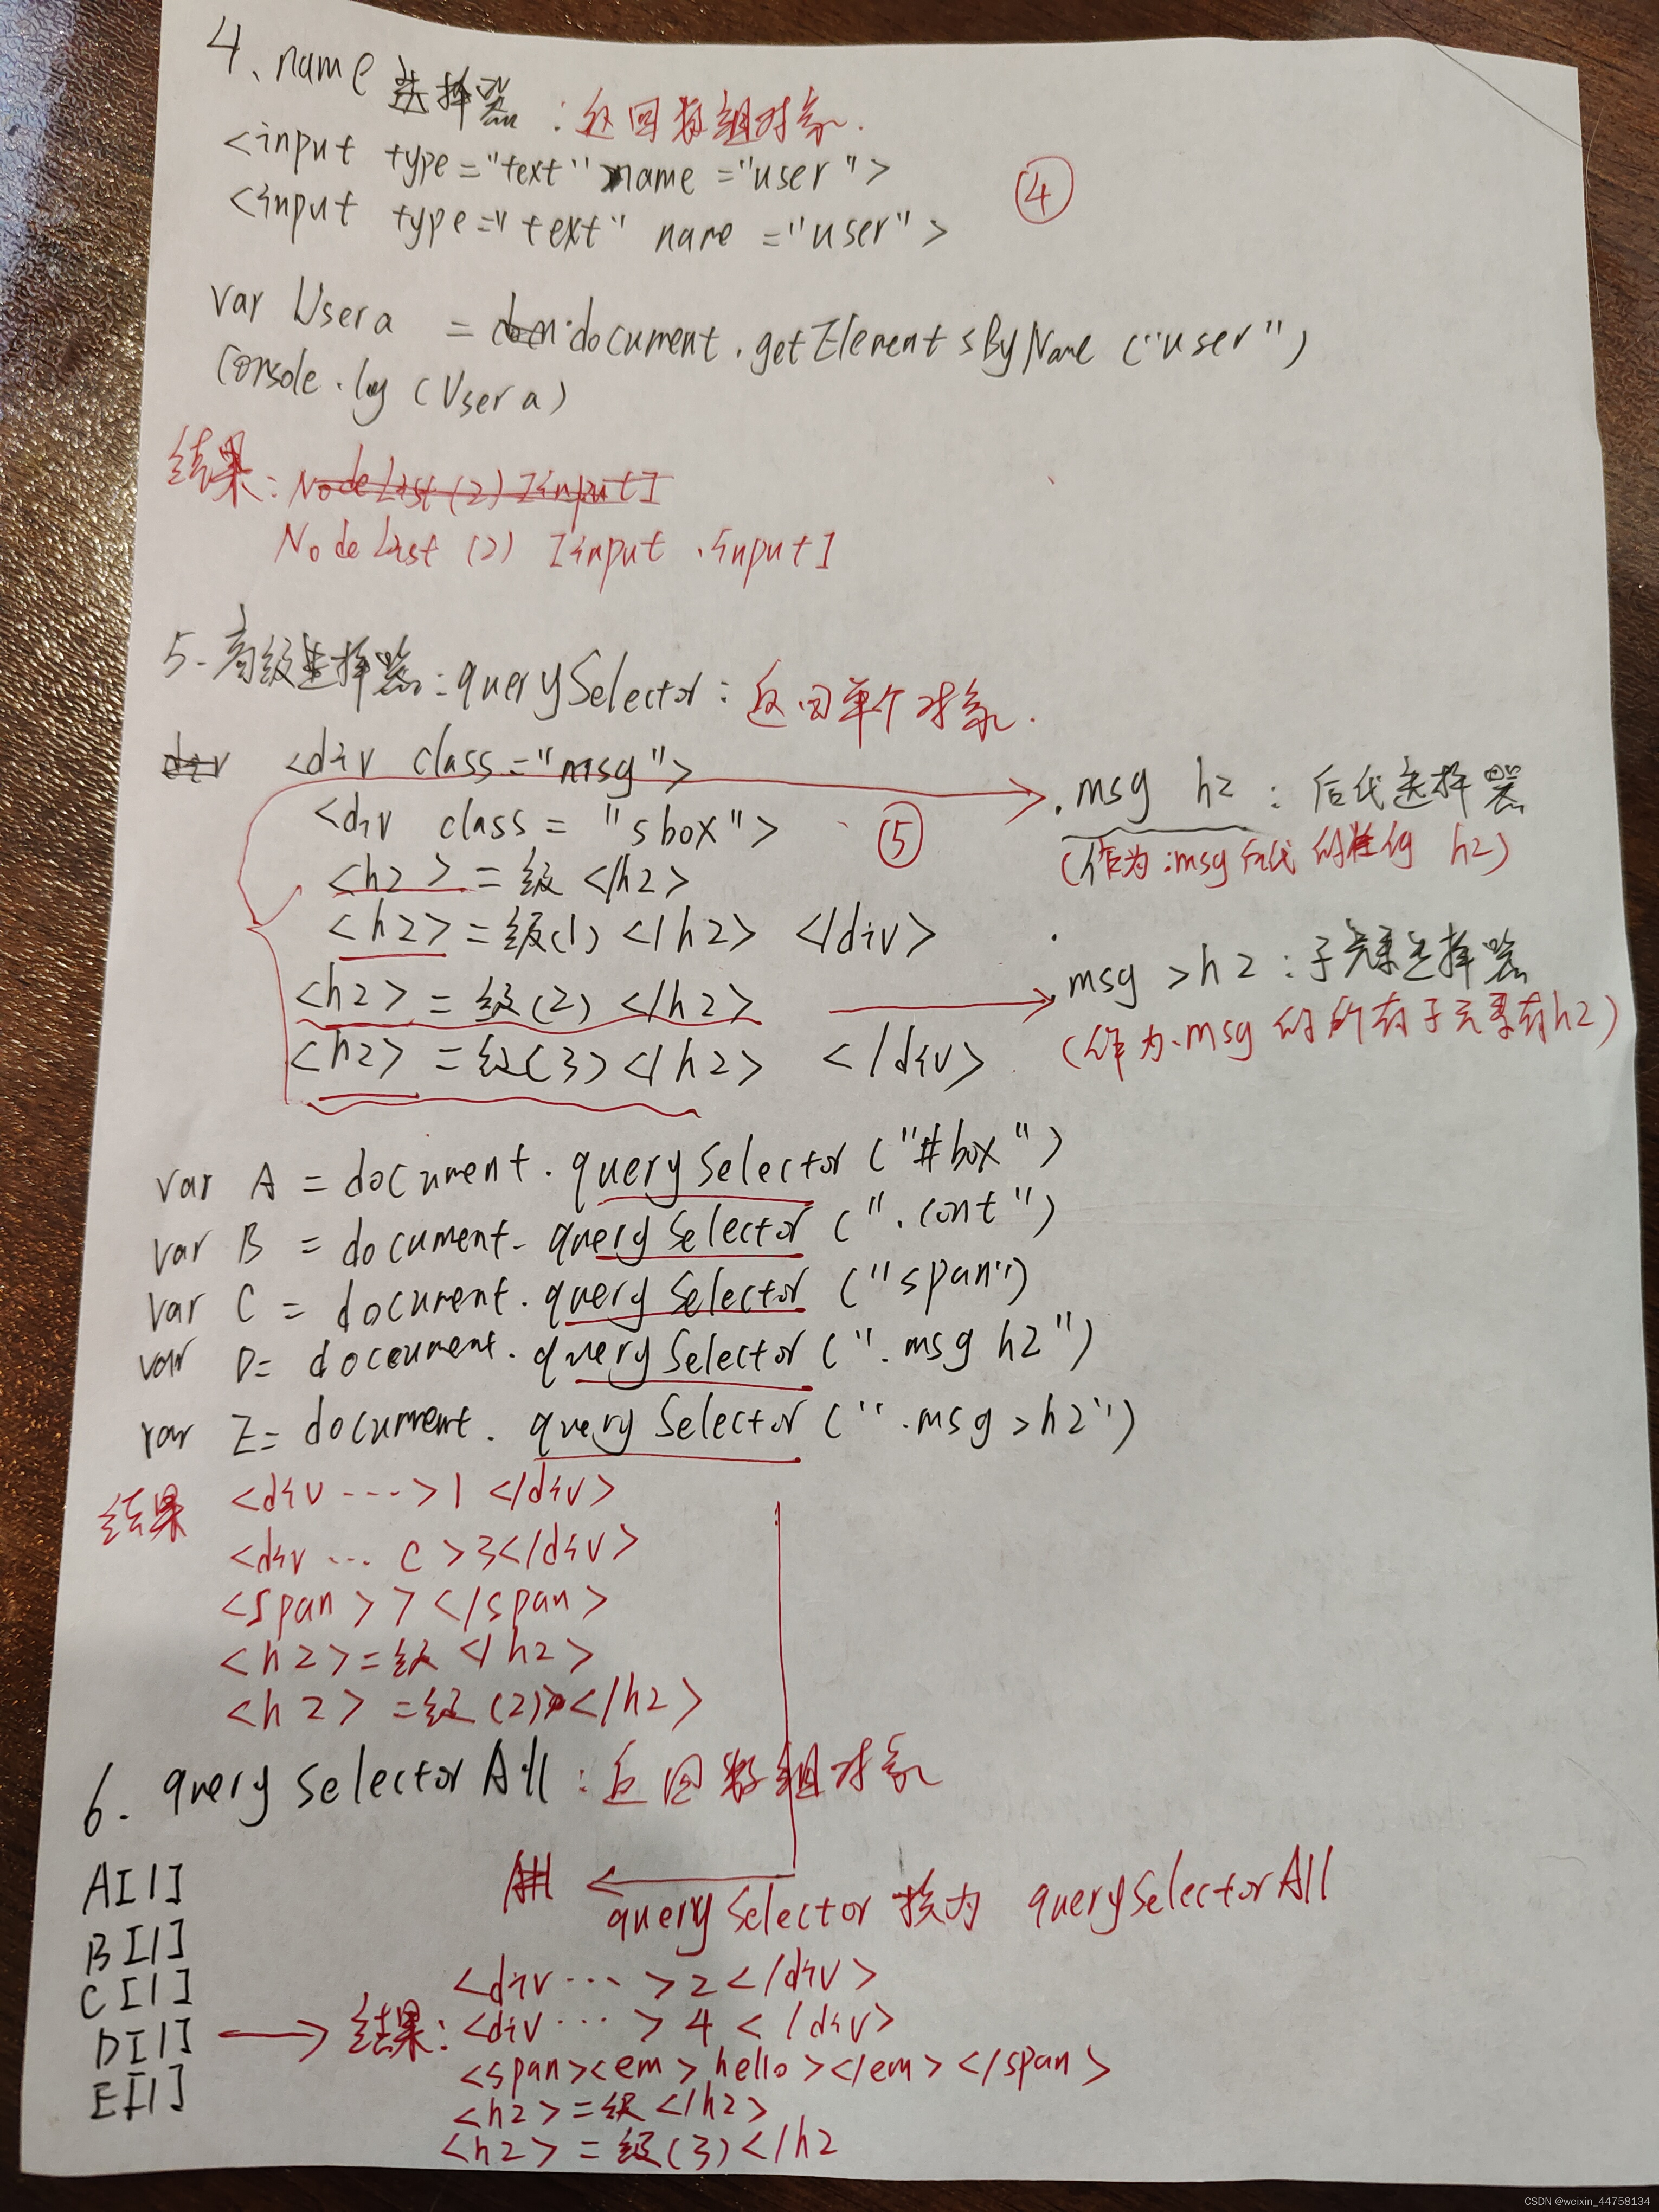 4、name 选择器 : 返回数组对象.
<input type="text" name="user">
④
<input type="text" name="user">
var Usera = document.getElementsByName("user")
Console.log(Usera)
结果: NodeList(2) [input]
NodeList(2) [input .input]
5. 高级选择器: querySelector: 返回单个对象.
div <div class="msg">
.msg h2 : 后代选择器
<div class="sbox">
⑤
(作为.msg后代的 h2)
<h2>=级</h2>
<h2>=级(1)</h2> </div>
.msg>h2:子元素选择器
<h2>=级(2)</h2>
(作为.msg的所有子元素有h2)
<h2>=级(3)</h2> </div>
var A = document.querySelector("#box")
var B = document.querySelector(".cont")
var C = document.querySelector("span")
var D= document.querySelector(".msg h2")
var E= document.querySelector(".msg>h2")
结果 <div --->1</div>
<div ... c>3</div>
<span>7</span>
<h2>=级</h2>
<h2>=级(2)</h2>
6. querySelectorAll:返回数组对象
All
querySelector 换为 querySelectorAll
A[1]
B[1]
C[1]
D[1]
E[1]
结果:
<div ...>2</div>
<div ...>4</div>
<span><em>hello></em></span>
<h2>=级</h2>
<h2>=级(3)</h2
CSDN @weixin_44758134